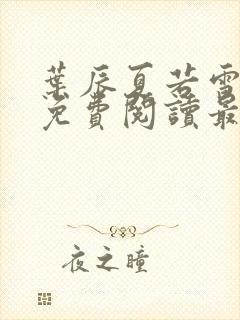 葉辰夏若雪
免費閱讀最
夜之瞳